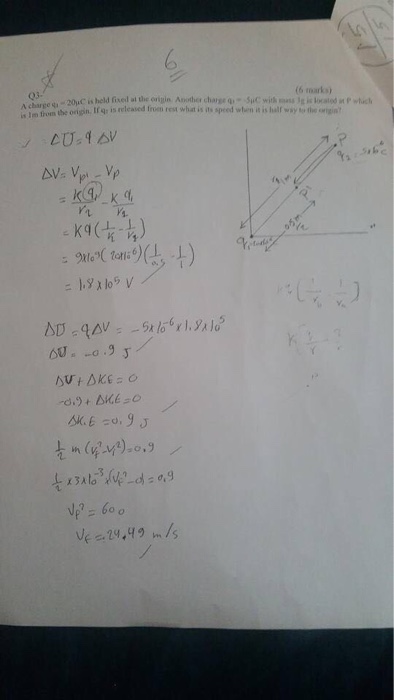 6
Q3-
(6 marks)
A charge q₁ = 20μC is held fixed at the origin. Another charge q₂ = -5μC with mass 3g is located at P which
is 1m from the origin. If q₂ is released from rest what is its speed when it is half way to the origin?
ΔU = q ΔV
ΔV = Vp' - Vp
= k q₁/r₂ - k q₁/r₁
= kq(1/r₂ - 1/r₁)
= 9x10⁹(20x10⁻⁶)(1/0.5 - 1/1)
= 1.8 x 10⁵ V
ΔU = qΔV = -5x10⁻⁶ x 1.8x10⁵
ΔU = -0.9 J
ΔU + ΔKE = 0
-0.9 + ΔKE = 0
ΔK.E = 0.9 J
1/2 m (Vf² - Vi²) = 0.9
1/2 x 3x10⁻³ x (Vf² - 0) = 0.9
Vf² = 600
Vf = 24.49 m/s
P
P'